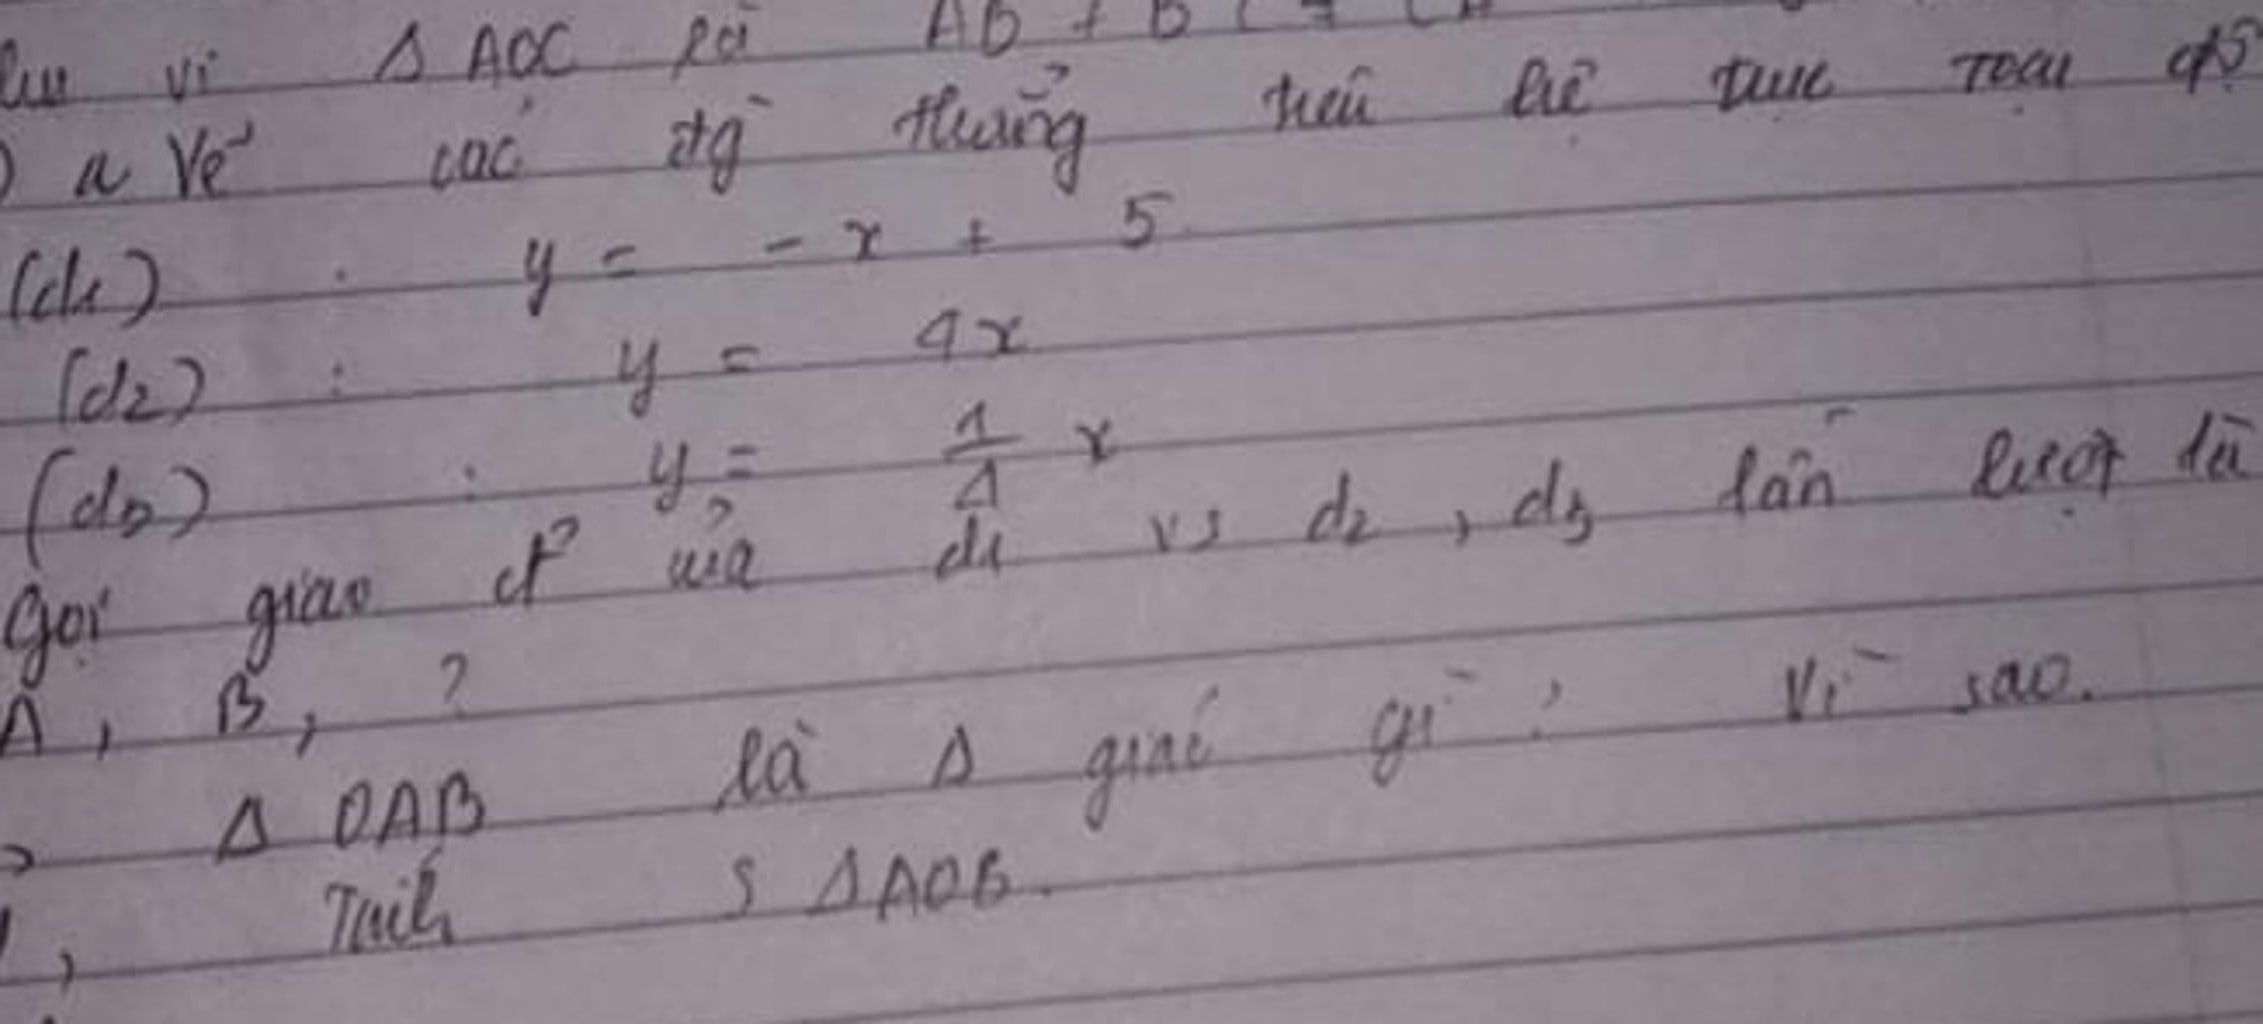 vi Δ AOC là AB + BC +
a Vẽ các đg thẳng trên hệ trục toạ độ
(d1) : y = - x + 5
(d2) : y = 4x
(d3) : y = 1/4 x
gọi giao đ' của d1 vs d2, d3 lần lượt là
A, B, ?
Δ OAB là Δ giác gì ? Vì sao.
Tính S ΔAOB.